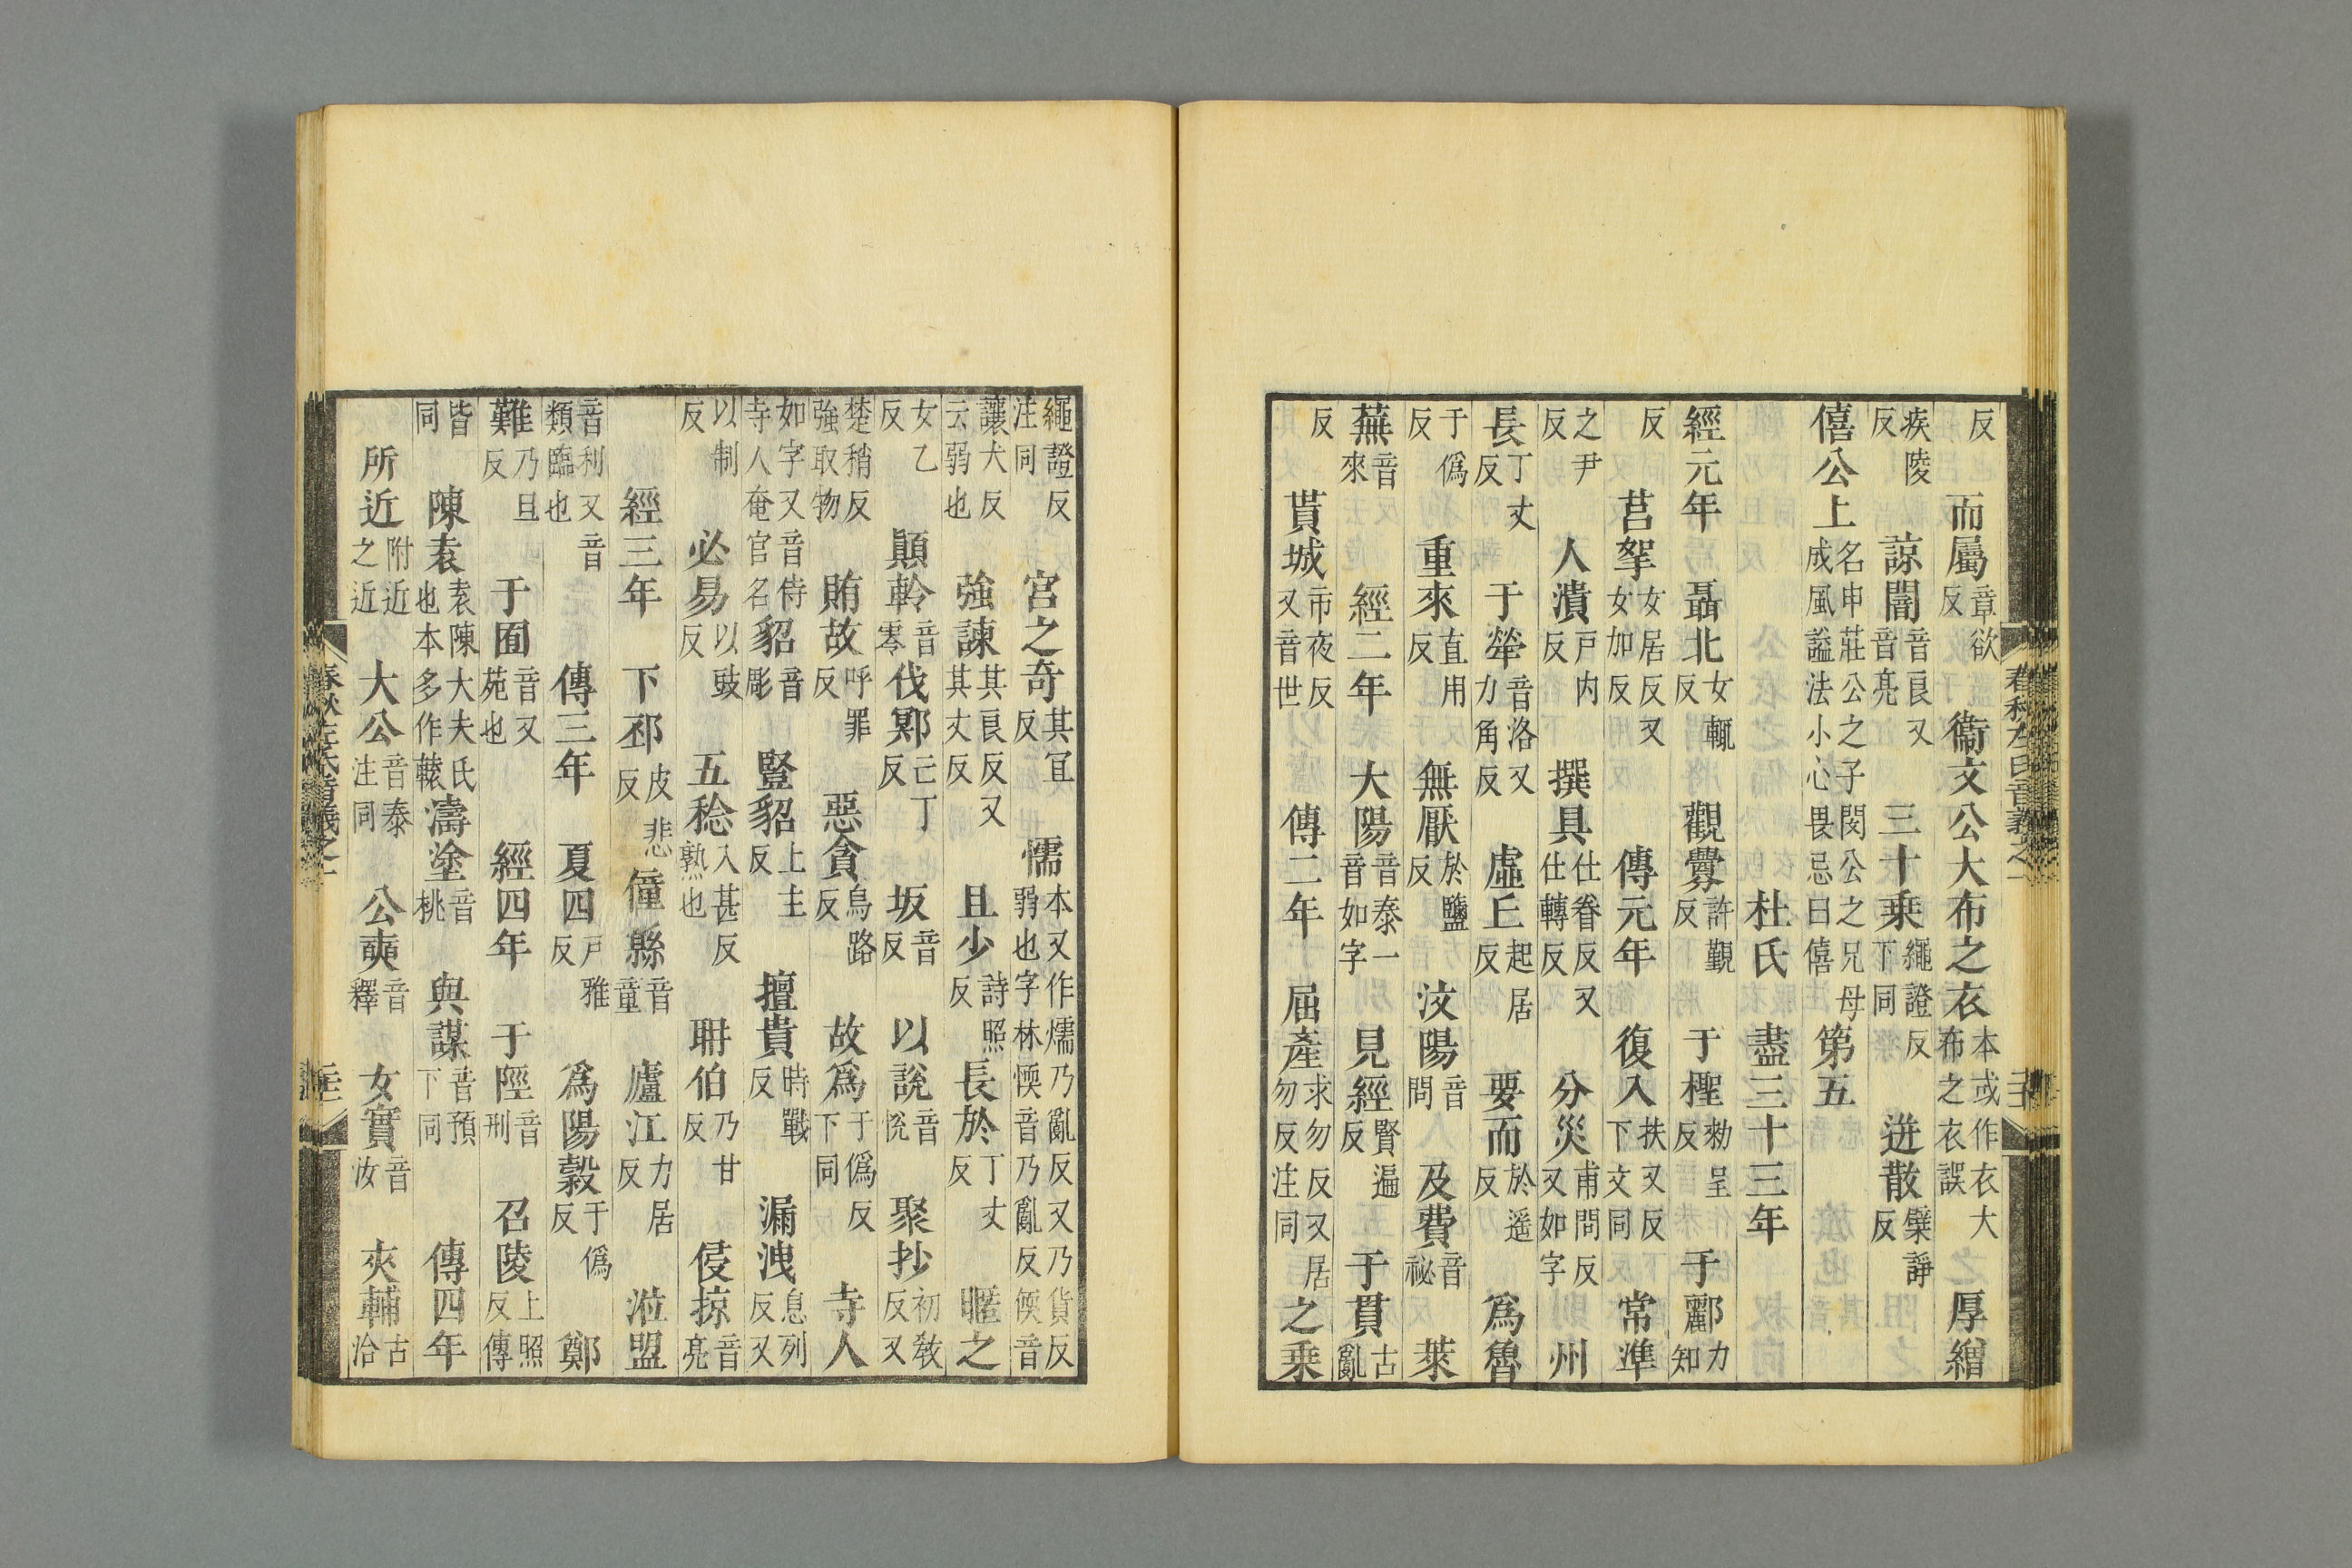 反　而屬章欲反　衞文公大布之衣本或作衣大布之衣誤　厚繒
疾陵反　諒闇音良又音亮　三十乘繩證反下同　迸散檗諍反
僖公上名申莊公之子閔公之兄母成風謚法小心畏忌曰僖　第五
杜氏　盡三十三年
經元年　聶北女輒反　觀釁許覲反　于檉勑呈反　于酈力知
反　莒挐女居反又女加反　傳元年　復入扶又反下文同　常準
之尹反　人潰戸内反　撰具仕眷反又仕轉反　分災甫問反又如字　州
長丁丈反　于犖音洛又力角反　虛丘起居反　要而於遥反　爲魯
于僞反　重來直用反　無厭於鹽反　汶陽音問　及費音祕　萊
蕪音來　經二年　大陽音泰一音如字　見經賢遍反　于貫古亂
反　貰城市夜反又音世　傳二年　屈產求勿反又居勿反注同　之乘
繩證反注同　宮之奇其宜反　懦本又作㦬乃亂反又乃貨反弱也字林愞音乃亂反偄音
讓犬反云弱也　強諫其良反又其丈反　且少詩照反　長於丁丈反　暱之
女乙反　顚軨音零　伐鄍亡丁反　坂音反　以說音悅　聚抄初敎反又
楚稍反強取物　賄故呼罪反　惡貪烏路反　故爲于僞反下同　寺人
如字又音侍寺人奄官名　貂音彫　豎貂上主反　擅貴時戰反　漏洩息列反又
以制反　必易以豉反　五稔入甚反熟也　聃伯乃甘反　侵掠音亮
經三年　下邳皮悲反　僮縣音童　廬江力居反　涖盟
音利又音類臨也　傳三年　夏四戸雅反　爲陽穀于僞反　鄭
難乃旦反　于囿音又苑也　經四年　于陘音刑　召陵上照反傳
皆同　陳袁袁陳大夫氏也本多作轅　濤塗音桃　與謀音預下同　傳四年
所近附近之近　大公音泰注同　公奭音釋　女實音汝　夾輔古洽
春秋左氏音義之一
春秋左氏音義之一